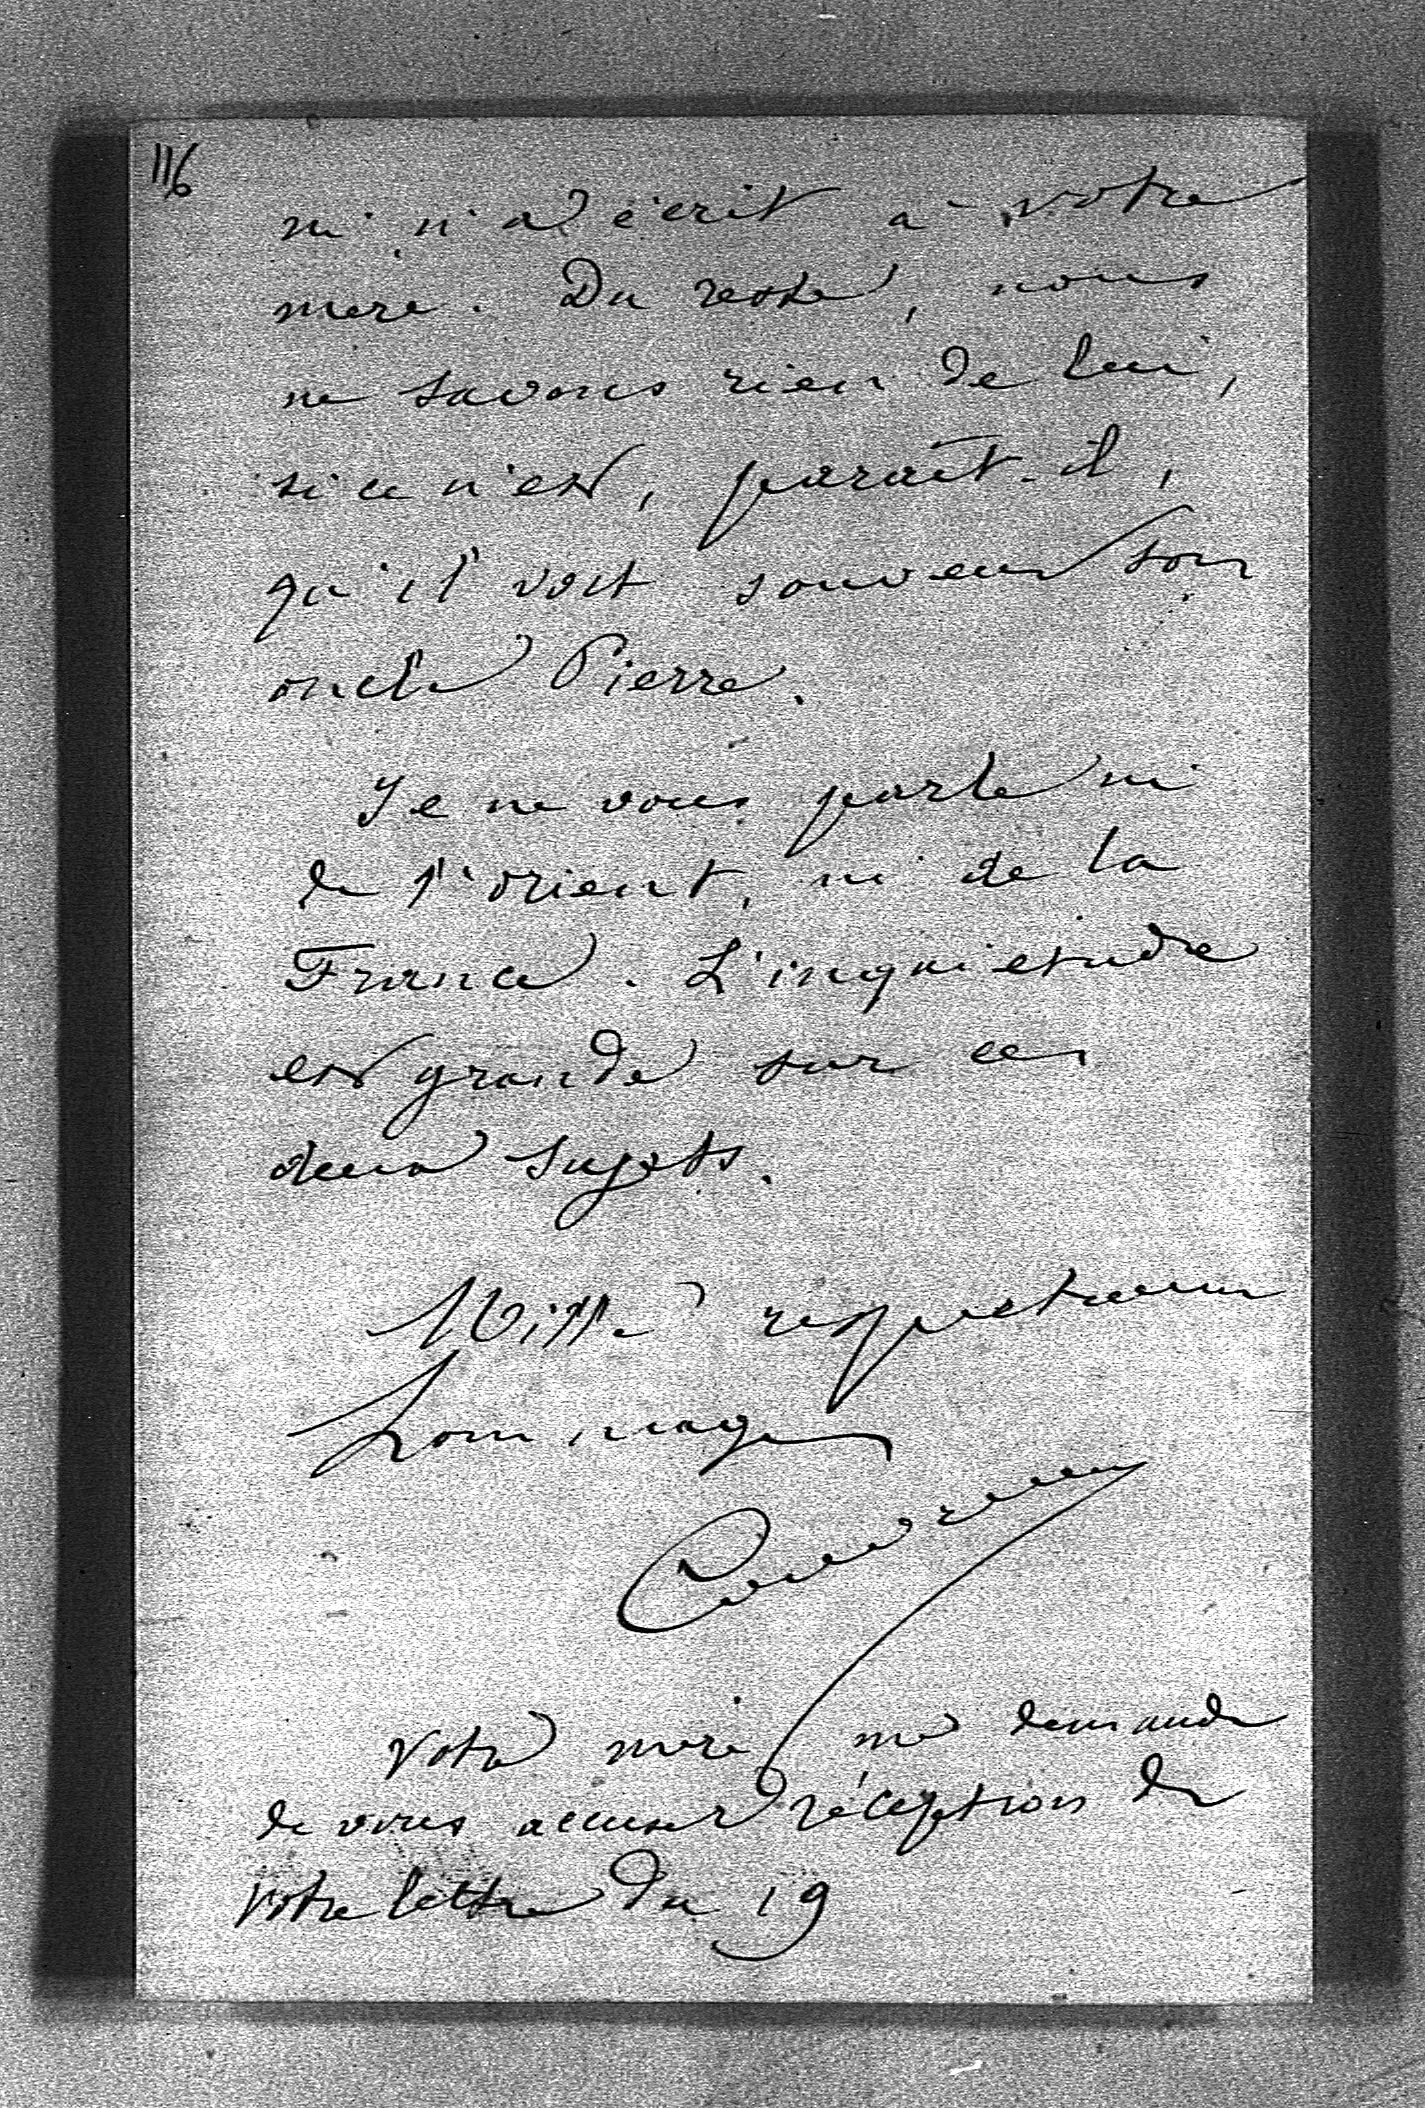 116
ni n'a écrit à votre
mère. Du reste, nous
ne savons rien de lui,
si ce n'est, paraît-il,
qu'il voit souvent son
oncle Pierre.
Je ne vous parle ni
de l'orient, ni de la
France. L'inquiétude
est grande sur ces
deux sujets.
Mille respectueux
hommages
Votre mère me demande
de vous accuser réception de
votre lettre du 19